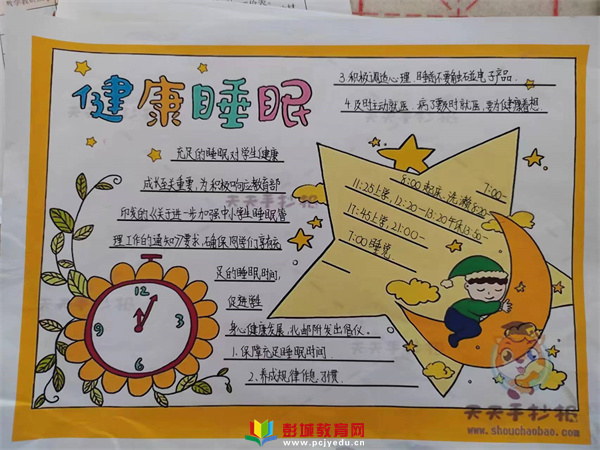 健康睡眠
充足的睡眠对学生健康
成长至关重要,为积极响应教育部
印发的《关于进一步加强中小学生睡眠管
理工作的通知》要求,确保同学们享有充
足的睡眠时间,
促进学生
身心健康发展,北邮附发出倡仪。
1.保障充足睡眠时间.
2.养成规律作息习惯.
3.积极调适心理,睡前不要触碰电子产品.
4.及时主动就医,病了要及时就医,要为健康着想.
7:00—
8:00起床,洗漱
11:25上学,12:20—13:20午休13:50—
17:45上学,21:00—
7:00睡觉.
12
3
6
9
天天手抄报
www.shouchaobao.com
彭城教育网
www.pcjyedu.cn